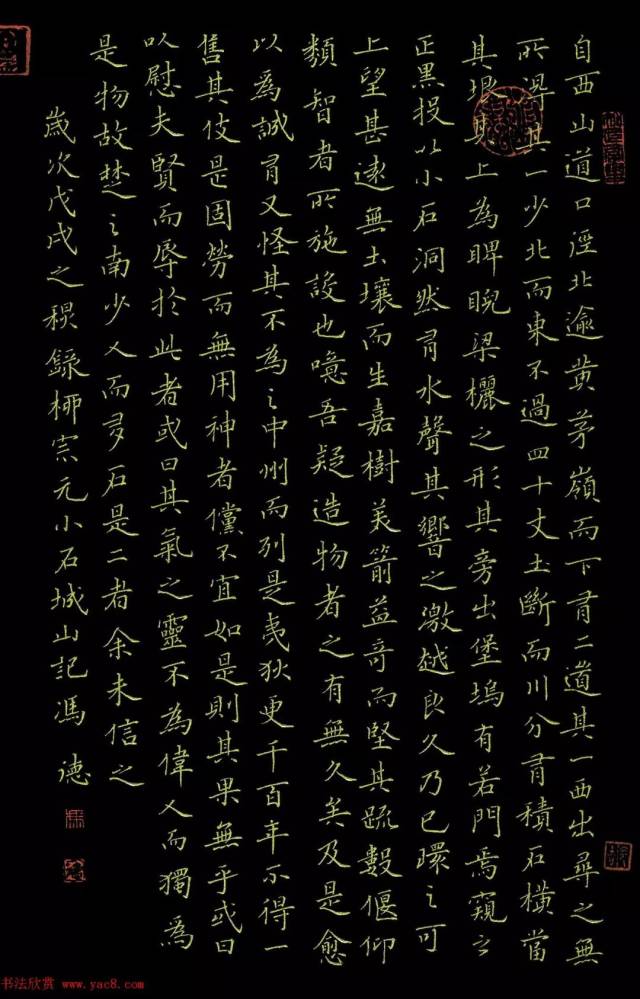 自西山道口徑北逾黄茅嶺而下有二道其一西出尋之無
所得其一少北而東不過四十丈土斷而川分有積石横當
其垠其上為睥睨梁欐之形其旁出堡塢有若門焉窺之
正黒投以小石洞然有水聲其響之激越良久乃已環之可
上望甚遠無土壤而生嘉樹美箭益奇而堅其疏數偃仰
類智者所施設也噫吾疑造物者之有無久矣及是愈
以為誠有又怪其不為之中州而列是夷狄更千百年不得一
售其伎是固勞而無用神者儻不宜如是則其果無乎或曰
以慰夫賢而辱於此者或曰其氣之靈不為偉人而獨為
是物故楚之南少人而多石是二者余未信之
歲次戊戌之穐錄栁宗元小石城山記馮德
书法欣赏 www.yac8.com